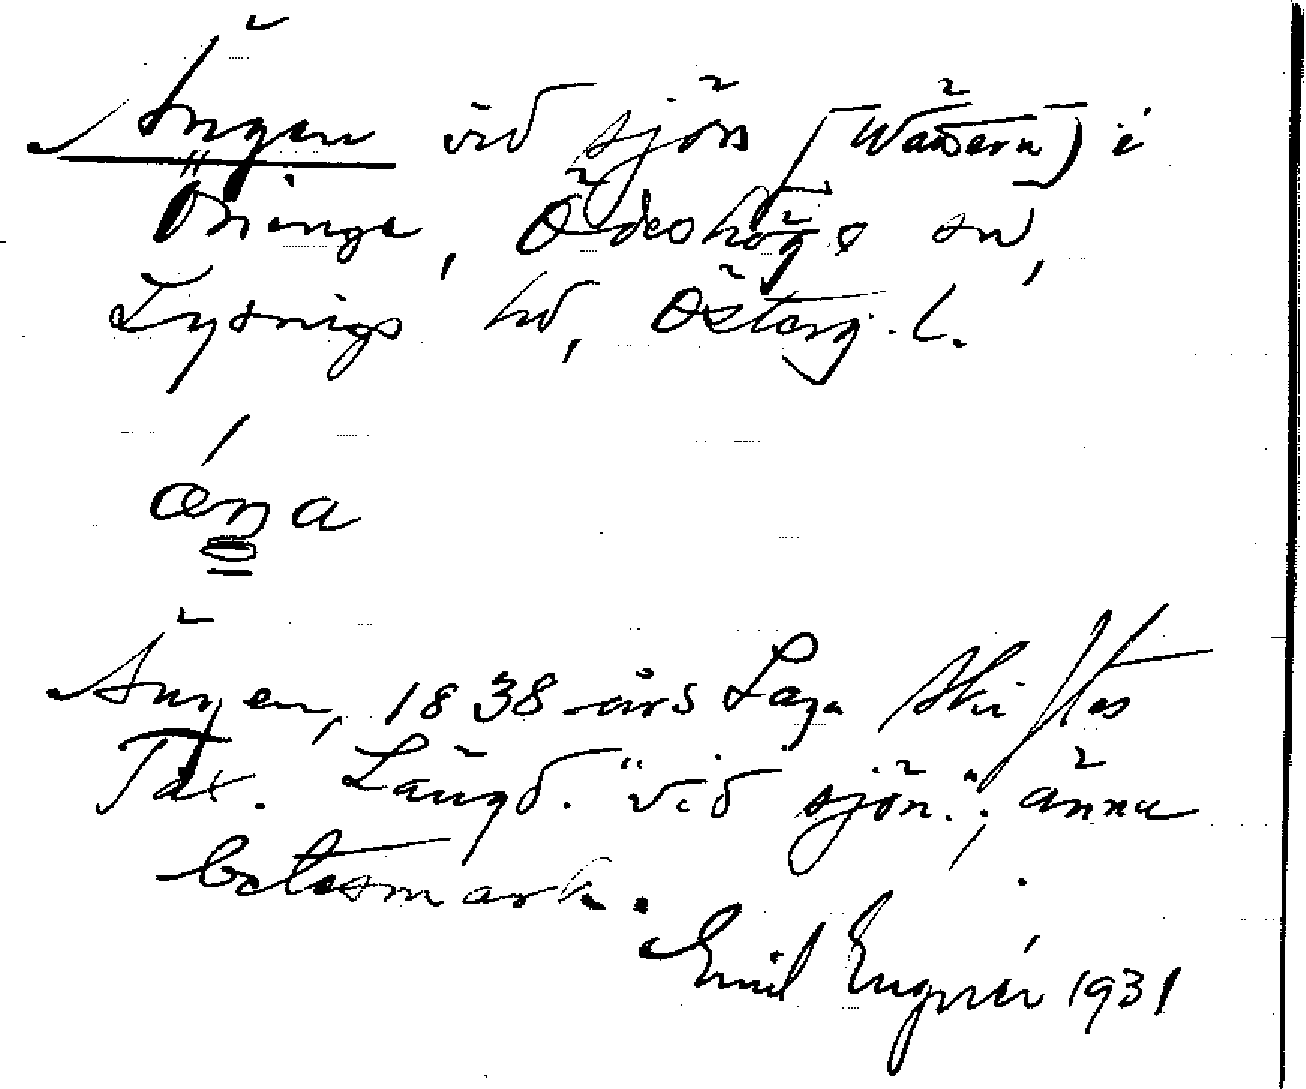 Ängen vid sjön (Wättern) i
Öninge, Ödeshögs sn,
Lysings hd, Österg. l.
Ängen, 1838 års Laga Skiftes
Tax. Längd. "vid sjön."; ännu
betesmark.
Emil Engnér 1931